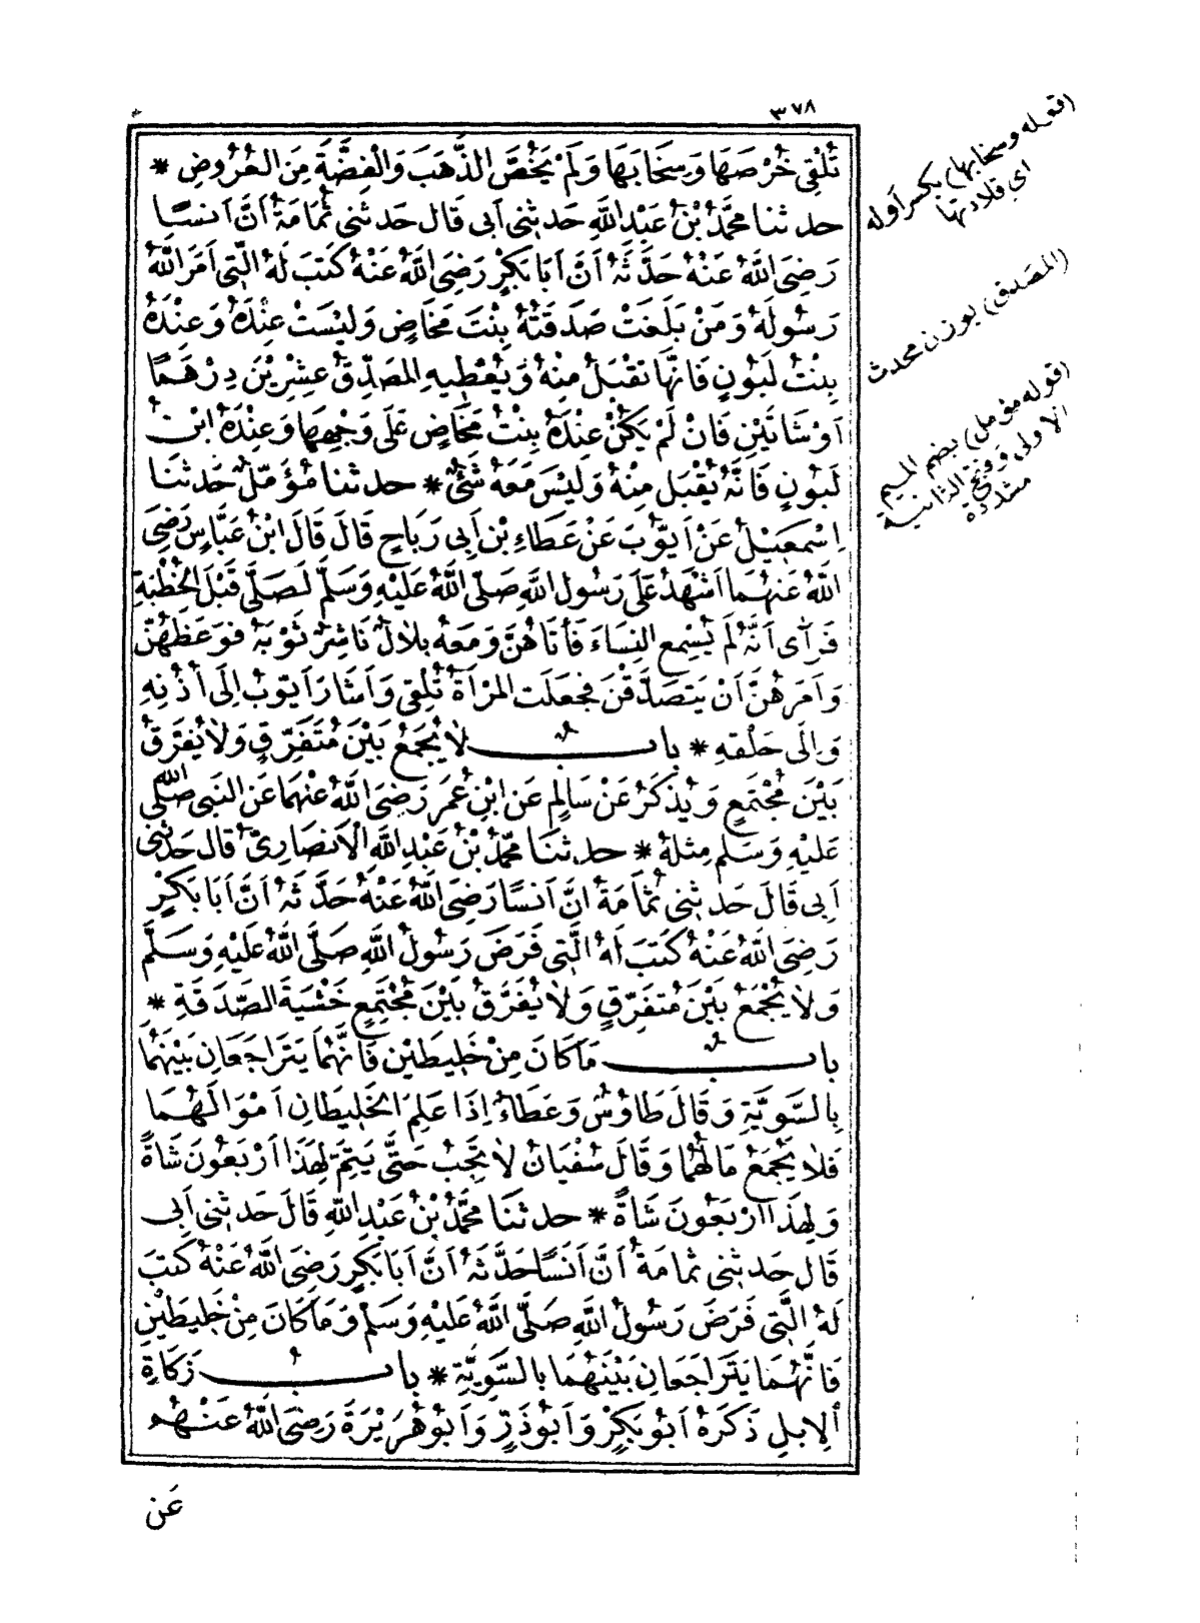 ٣٧٨
تُلْقِى خُرْصَهَا وَسِخَابَهَا وَلَمْ يَخُصَّ الذَّهَبَ وَالْفِضَّةَ مِنَ الْعُرُوضِ *
حدثنا مُحَمَّدُ بْنُ عَبْدِ اللَّهِ حَدثنِى أَبِى قَالَ حَدثنِى ثُمَامَةُ أَنَّ أَنَسًا
رَضِىَ اللَّهُ عَنْهُ حَدَّثَهُ أَنَّ أَبَا بَكْرٍ رَضِىَ اللَّهُ عَنْهُ كَتَبَ لَهُ الَّتِى أَمَرَ اللَّهُ
رَسُولَهُ وَمَنْ بَلَغَتْ صَدَقَتُهُ بِنْتَ مَخَاضٍ وَلَيْسَتْ عِنْدَهُ وَعِنْدَهُ
بِنْتُ لَبُونٍ فَإِنَّهَا تُقْبَلُ مِنْهُ وَيُعْطِيهِ الْمُصَدِّقُ عِشْرِيْنَ دِرْهَمًا
أَوْ شَاتَيْنِ فَإِنْ لَمْ يَكُنْ عِنْدَهُ بِنْتُ مَخَاضٍ عَلَى وَجْهِهَا وَعِنْدَهُ ابْنُ
لَبُونٍ فَإِنَّهُ يُقْبَلُ مِنْهُ وَلَيْسَ مَعَهُ شَىْءٌ * حدثنا مُؤَمَّلٌ حَدثنَا
إِسْمَعِيْلُ عَنْ أَيُّوبَ عَنْ عَطَاءِ بْنِ أَبِى رَبَاحٍ قَالَ قَالَ ابْنُ عَبَّاسٍ رَضِىَ
اللَّهُ عَنْهُمَا أَشْهَدُ عَلَى رَسُولِ اللَّهِ صَلَّى اللَّهُ عَلَيْهِ وَسَلَّمَ لَصَلَّى قَبْلَ الْخُطْبَةِ
فَرَأَى أَنَّهُ لَمْ يُسْمِعِ النِّسَاءَ فَأَتَاهُنَّ وَمَعَهُ بِلَالٌ نَاشِرٌ ثَوْبَهُ فَوَعَظَهُنَّ
وَأَمَرَهُنَّ أَنْ يَتَصَدَّقْنَ فَجَعَلَتِ الْمَرْأَةُ تُلْقِى وَأَشَارَ أَيُّوبُ إِلَى أُذُنِهِ
وَإِلَى حَلْقِهِ * بَابٌ لَا يُجْمَعُ بَيْنَ مُتَفَرِّقٍ وَلَا يُفَرَّقُ
بَيْنَ مُجْتَمِعٍ وَيُذْكَرُ عَنْ سَالِمٍ عَنِ ابْنِ عُمَرَ رَضِىَ اللَّهُ عَنْهُمَا عَنِ النَّبِى صَلَّى اللَّهُ
عَلَيْهِ وَسَلَّمَ مِثْلَهُ * حدثنَا مُحَمَّدُ بْنُ عَبْدِ اللَّهِ الْأَنْصَارِىُّ قَالَ حَدثنِى
أَبِى قَالَ حَدثنِى ثُمَامَةُ أَنَّ أَنَسًا رَضِىَ اللَّهُ عَنْهُ حَدَّثَهُ أَنَّ أَبَا بَكْرٍ
رَضِىَ اللَّهُ عَنْهُ كَتَبَ لَهُ الَّتِى فَرَضَ رَسُولُ اللَّهِ صَلَّى اللَّهُ عَلَيْهِ وَسَلَّمَ
وَلَا يُجْمَعُ بَيْنَ مُتَفَرِّقٍ وَلَا يُفَرَّقُ بَيْنَ مُجْتَمِعٍ خَشْيَةَ الصَّدَقَةِ *
بَابٌ مَا كَانَ مِنْ خَلِيطَيْنِ فَإِنَّهُمَا يَتَرَاجَعَانِ بَيْنَهُمَا
بِالسَّوِيَّةِ وَقَالَ طَاوُسٌ وَعَطَاءٌ إِذَا عَلِمَ الْخَلِيطَانِ أَمْوَالَهُمَا
فَلَا يُجْمَعُ مَالُهُمَا وَقَالَ سُفْيَانُ لَا تَجِبُ حَتَّى يَتِمَّ لِهَذَا أَرْبَعُونَ شَاةً
وَلِهَذَا أَرْبَعُونَ شَاةً * حدثنَا مُحَمَّدُ بْنُ عَبْدِ اللَّهِ قَالَ حَدثنِى أَبِى
قَالَ حَدثنِى ثُمَامَةُ أَنَّ أَنَسًا حَدَّثَهُ أَنَّ أَبَا بَكْرٍ رَضِىَ اللَّهُ عَنْهُ كَتَبَ
لَهُ الَّتِى فَرَضَ رَسُولُ اللَّهِ صَلَّى اللَّهُ عَلَيْهِ وَسَلَّمَ وَمَا كَانَ مِنْ خَلِيطَيْنِ
فَإِنَّهُمَا يَتَرَاجَعَانِ بَيْنَهُمَا بِالسَّوِيَّةِ * بَابُ زَكَاةِ
الْإِبِلِ ذَكَرَهُ أَبُو بَكْرٍ وَأَبُو ذَرٍّ وَأَبُو هُرَيْرَةَ رَضِىَ اللَّهُ عَنْهُمْ
عَن
(قوله وسخابها) بكسر أوله
اى قلادتها
(المصدق) بوزن محدث
(قوله مؤمل) بضم الميم
الاولى وفتح الثانية
مشددة